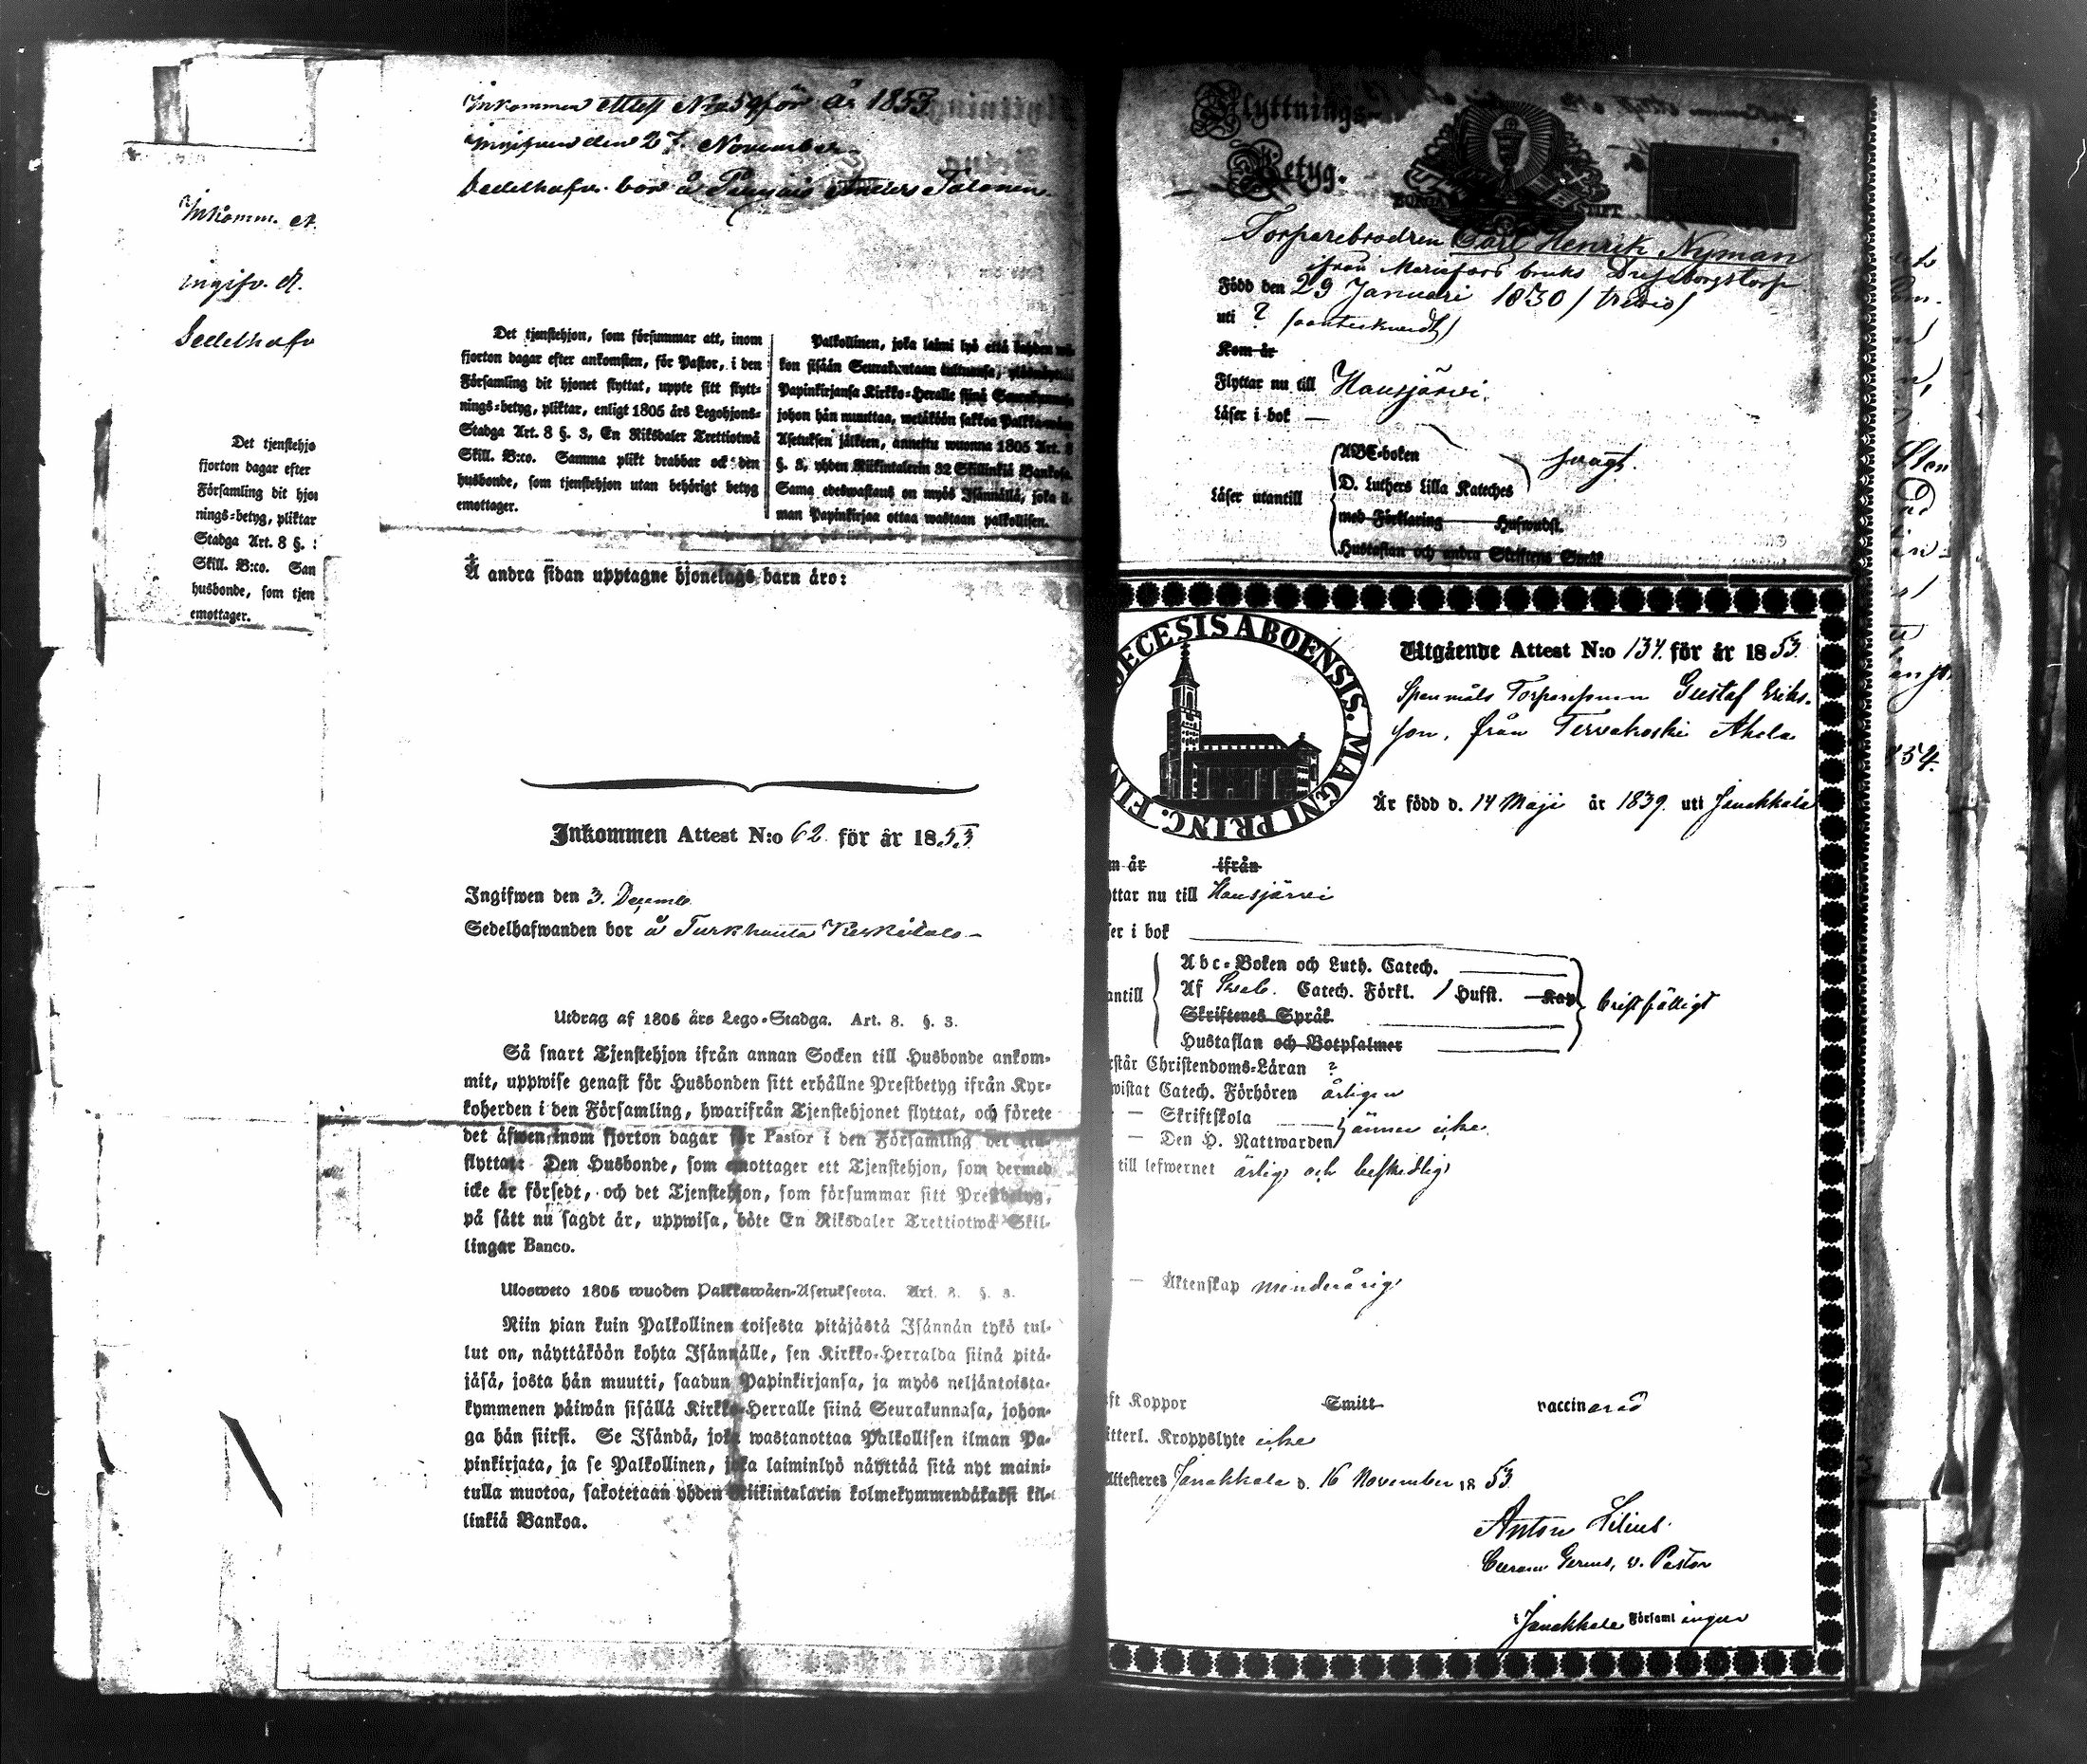 Inkomm. at
ingifv. d.
Sedelhafv
Det tjenstehjo
fjorton dagar efter
Församling dit hjo
nings-betyg, pliktar
Stadga Art. 8 §. 3
Skill. B:co. Sam
husbonde, som tjen
emottager.
Inkommen attest No 59 för år 1853
ingifven den 27 November
Sedelhafv. bor å Anders Talonen
Det tjenstehjon, som försummar att, inom
fjorton dagar efter ankomsten, för Pastor, i den
Församling dit hjonet flyttat, uppte sitt flytt-
nings-betyg, pliktar, enligt 1805 års Legohjons-
Stadga Art. 8 §. 3, En Riksdaler Trettiotwå
Skill. B:co. Samma plikt drabbar ock den
husbonde, som tjenstehjon utan behörigt betyg
emottager.
Palkollinen, joka laimi lyö että kahden wii-
kon sisään Seurakuntaan tultuansa, ylösnäyttää
Papinkirjansa Kirkko-Heralle siinä Seurakunnassa
johon hän muuttaa, wetäköön sakkoa Palkkawäen
Asetuksen jälkeen, annettu wuonna 1805 Art. 8
§. 3, yhden Riikintalerin 32 Skillinkiä Bankosa.
Sama edeswastaus on myös Isännällä, joka il-
man Papinkirjaa ottaa wastaan palkollisen.
Å andra sidan upptagne hjonelags barn äro:
Inkommen Attest N:o 62. för år 1853
Ingifwen den 3. Decemb.
Sedelhafwanden bor å Turkhauta Keskitalo
Utdrag af 1805 års Lego-Stadga. Art. 8. §. 3.
Så snart Tjenstehjon ifrån annan Socken till Husbonde ankom-
mit, uppwise genast för Husbonden sitt erhållne Prestbetyg ifrån Kyr-
koherden i den Församling, hwarifrån Tjenstehjonet flyttat, och förete
det äfwen inom fjorton dagar för Pastor i den Församling det till-
flyttat: Den Husbonde, som emottager ett Tjenstehjon, som dermed
icke är försedt, och det Tjenstehjon, som försummar sitt Prestbetyg,
på sätt nu sagdt är, uppwisa, böte En Riksdaler Trettiotwå Skil-
lingar Banco.
Ulosweto 1805 wuoden Palkkawäen-Asetuksesta. Art. 8. §. 3.
Niin pian kuin Palkollinen toisesta pitäjästä Isännän tykö tul-
lut on, näyttäköön kohta Isännälle, sen Kirkko-Herralda siinä pitä-
jäsä, josta hän muutti, saadun Papinkirjansa, ja myös neljäntoista-
kymmenen päiwän sisällä Kirkko-Herralle siinä Seurakunnasa, johon-
ga hän siirsi. Se Isändä, joka wastanottaa Palkollisen ilman Pa-
pinkirjata, ja se Palkollinen, joka laiminlyö näyttää sitä nyt maini-
tulla muotoa, sakotetaan yhden Riikintalarin kolmekymmendäkaksi kil-
linkiä Bankoa.
Flyttnings-
Betyg.
BORGÅ STIFT
Torparebrodren Carl Henrik Nyman
ifrån Mariefors bruks
Född den 29 Januari 1830
uti ?
Kom år
Flyttar nu till Hausjärvi.
Läser i bok —
Läser utantill
ABC-boken
D. Luthers Lilla Kateches
svagt.
med Förklaring Hufwudst.
Hustaflan och andra Skriftens Språk
DIOECESIS ABOENSIS. MAGNI PRINC. FIN
Utgående Attest N:o 134. för år 1853.
Spanmåls Torparesonen Gustaf Eriks-
son, från Tervakoski Ahola
Är född d. 14 Maji år 1839. uti Janakkala
m år ifrån
yttar nu till Hausjärvi
ser i bok
antill
Abc-Boken och Luth. Catech.
Af Catech. Förkl. 1 Hufst. Kap
Skriftenes Språk
Hustaflan och Botpsalmer
bristfälligt
rstår Christendoms-Läran ?
wistat Catech. Förhören årligen
— Skriftskola
— Den H. Nattwarden
ännu icke
till lefwernet ärlig och beskedlig
— Äktenskap minderårig
ft Koppor Smitt vaccinerad
itterl. Kroppslyte icke
Attesteres Janakkala d. 16 November 1853
Anton Lilius.
v. Pastor
i Janakkala Församlingen